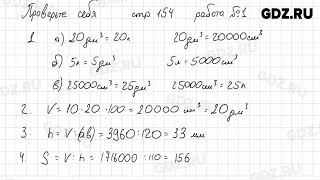 GDZ.RU
Проверьте себя стр 154 работа №1
1 а) 20дм³ = 20л 20дм³ = 20000см³
б) 5л = 5дм³ 5л = 5000см³
в) 25000см³ = 25дм³ 25000см³ = 25л
2. V = 10 · 20 · 100 = 20000 см³ = 20дм³
3. h = V : (ab) = 3960 : 120 = 33 мм
4. S = V : h = 1716000 : 110 = 156
GDZ.RU